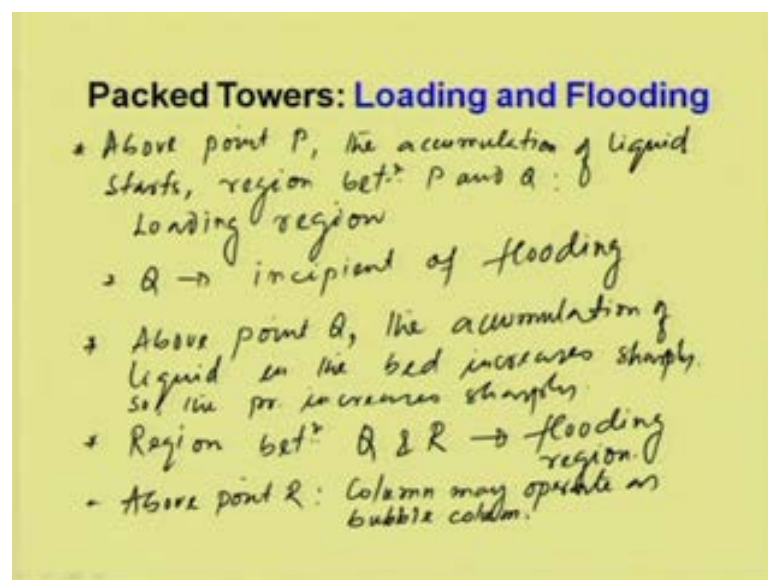 Packed Towers: Loading and Flooding
* Above point P, the accumulation of liquid
starts, region betn P and Q :
Loading region
* Q → incipient of flooding
* Above point Q, the accumulation of
liquid in the bed increases sharply.
So the pr. increases sharply.
* Region betn Q & R → flooding
region.
- Above point R : Column may operate as
bubble column.